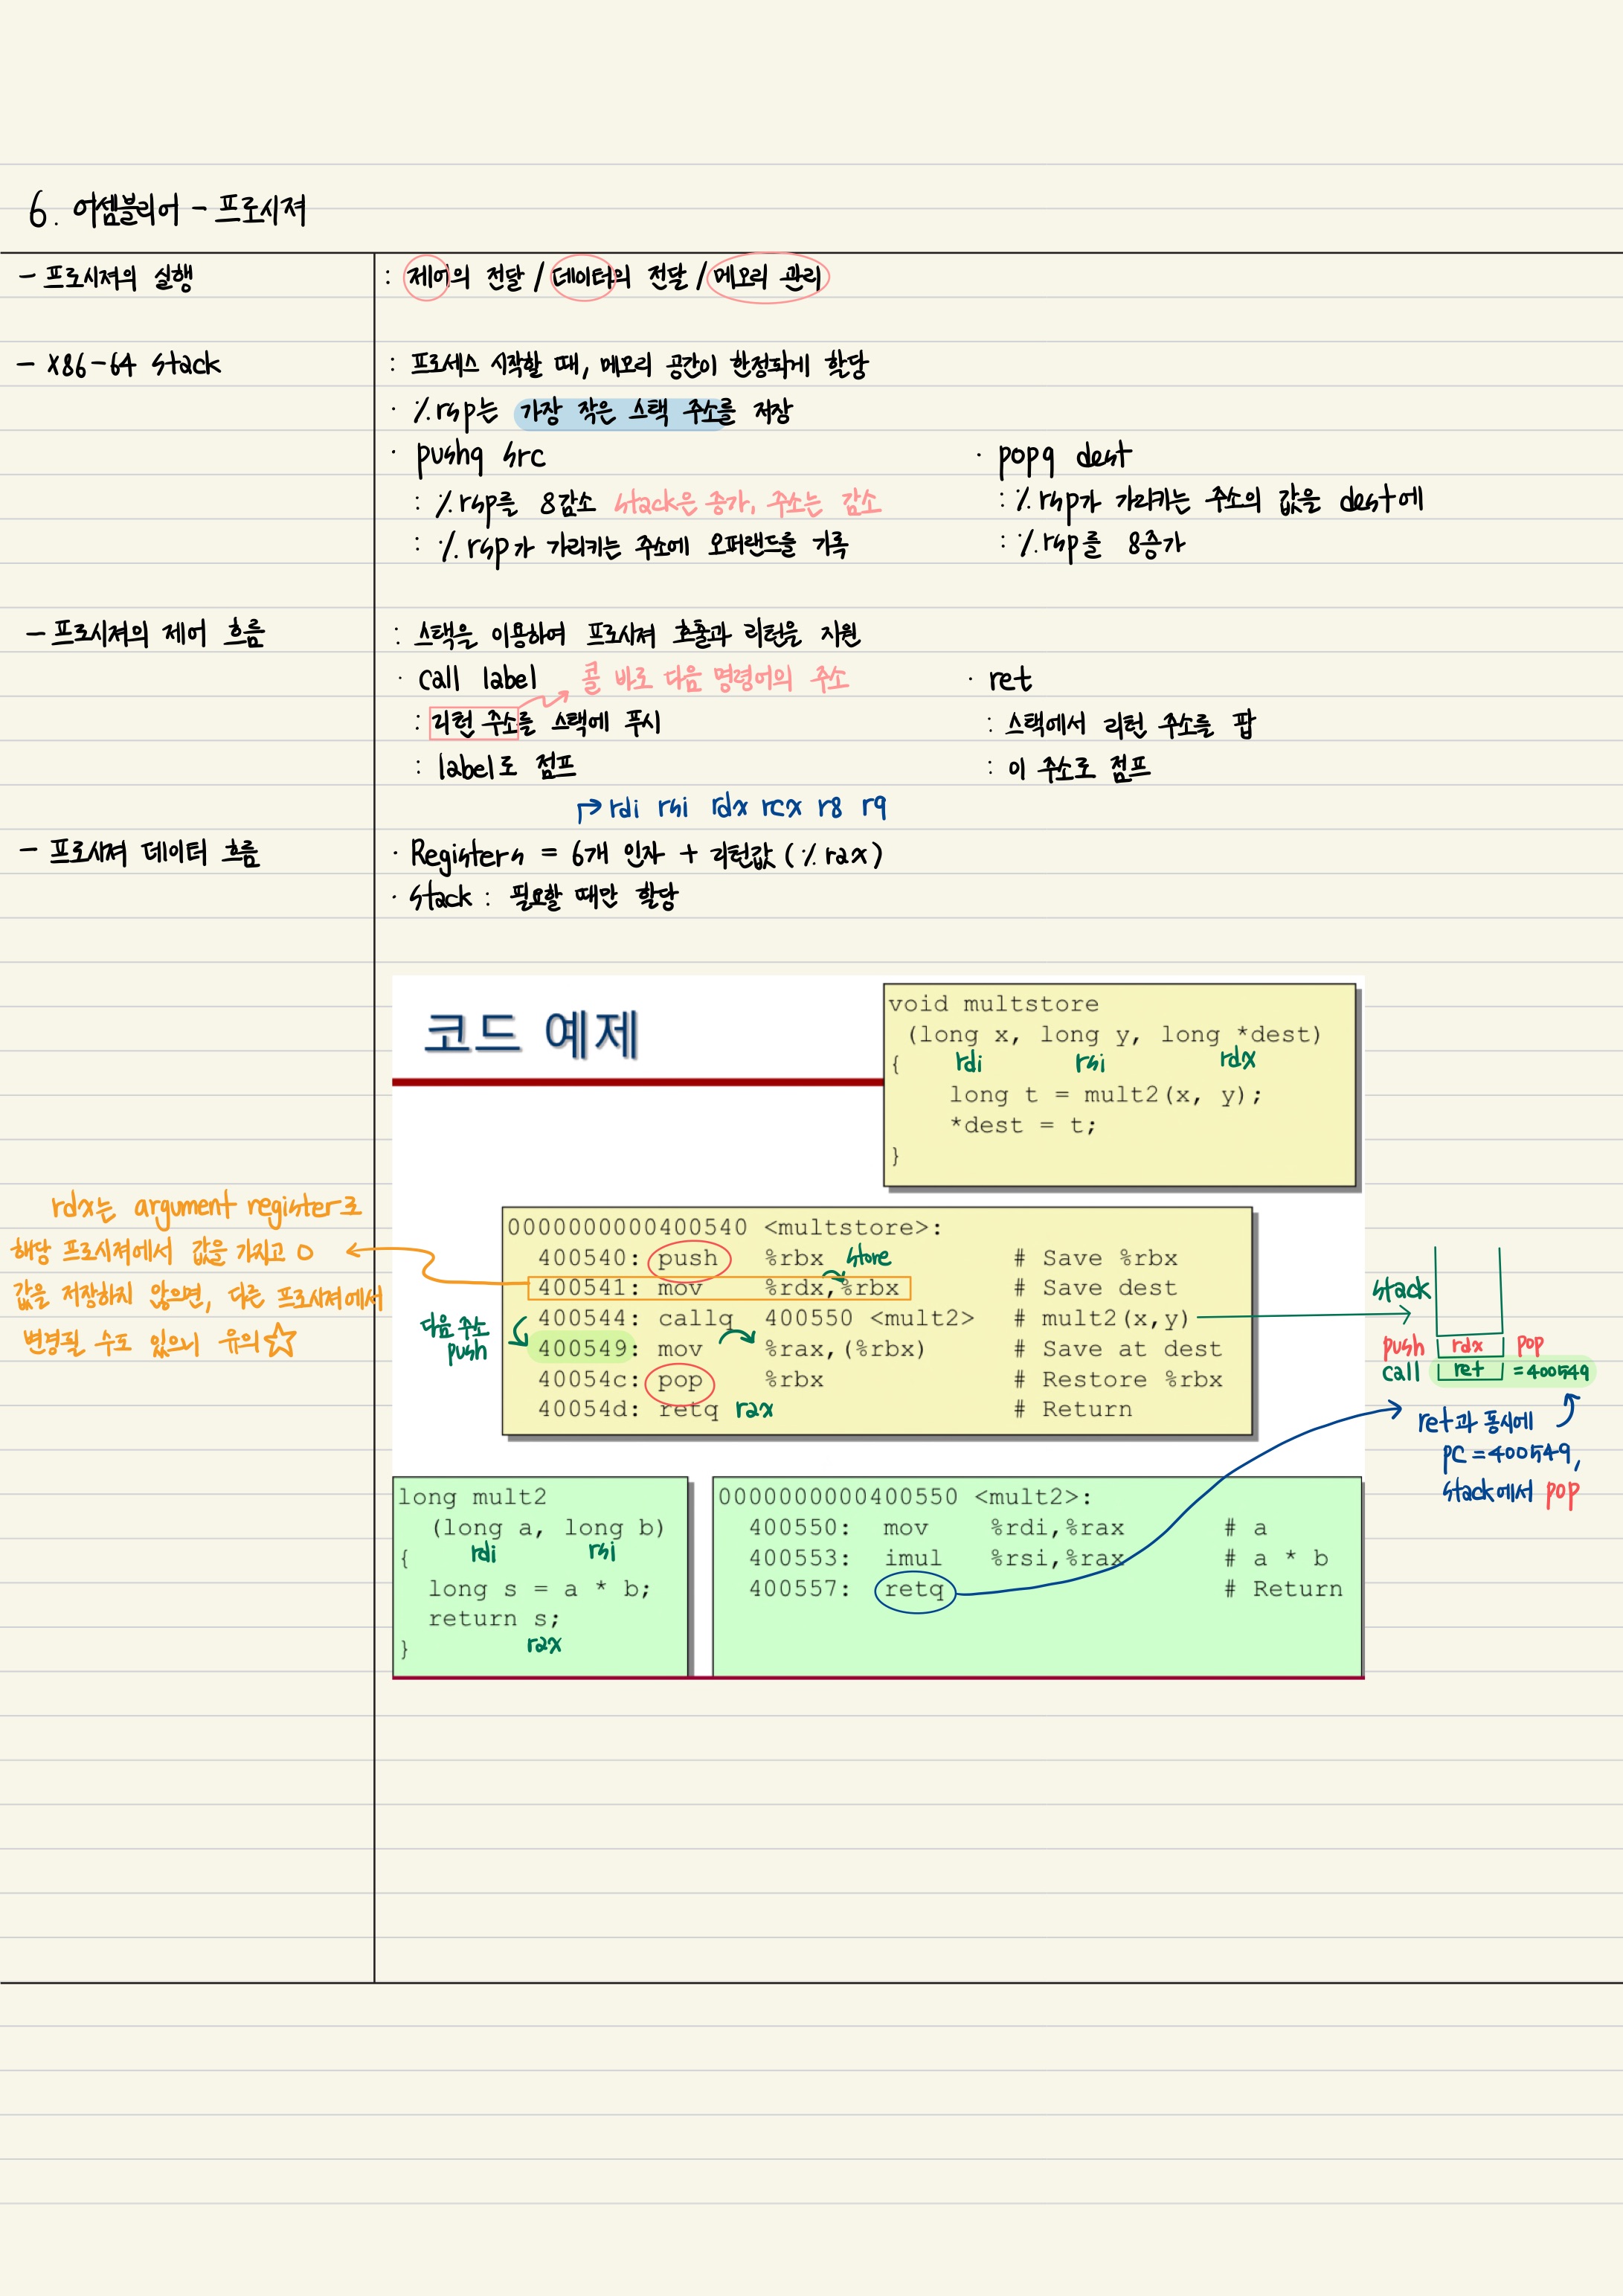 6. 어셈블리어 - 프로시져
- 프로시져의 실행
: 제어의 전달 / 데이터의 전달 / 메모리 관리
- X86-64 stack
: 프로세스 시작할 때, 메모리 공간이 한정되게 할당
· %rsp는 가장 작은 스택 주소를 저장
· pushq src
: %rsp를 8감소 stack은 증가, 주소는 감소
: %rsp가 가리키는 주소에 오퍼랜드를 기록
· popq dest
: %rsp가 가리키는 주소의 값을 dest에
: %rsp를 8증가
- 프로시져의 제어 흐름
: 스택을 이용하여 프로시져 호출과 리턴을 지원
· call label
콜 바로 다음 명령어의 주소
: 리턴 주소를 스택에 푸시
: label로 점프
· ret
: 스택에서 리턴 주소를 팝
: 이 주소로 점프
→ rdi rsi rdx rcx r8 r9
- 프로시져 데이터 흐름
· Registers = 6개 인자 + 리턴값 (%rax)
· stack : 필요할 때만 할당
코드 예제
void multstore
(long x, long y, long *dest)
{ rdi rsi rdx
long t = mult2(x, y);
*dest = t;
}
rdx는 argument register로
해당 프로시져에서 값을 가지고 o
값을 저장하지 않으면, 다른 프로시져에서
변경될 수도 있으니 유의☆
0000000000400540 <multstore>:
400540: push %rbx store # Save %rbx
400541: mov %rdx,%rbx # Save dest
400544: callq 400550 <mult2> # mult2(x,y)
400549: mov %rax,(%rbx) # Save at dest
40054c: pop %rbx # Restore %rbx
40054d: retq rax # Return
다음 주소
push
stack
push rdx pop
call ret =400549
ret과 동시에
PC=400549,
stack에서 pop
long mult2
(long a, long b)
{ rdi rsi
long s = a * b;
return s;
} rax
0000000000400550 <mult2>:
400550: mov %rdi,%rax # a
400553: imul %rsi,%rax # a * b
400557: retq # Return